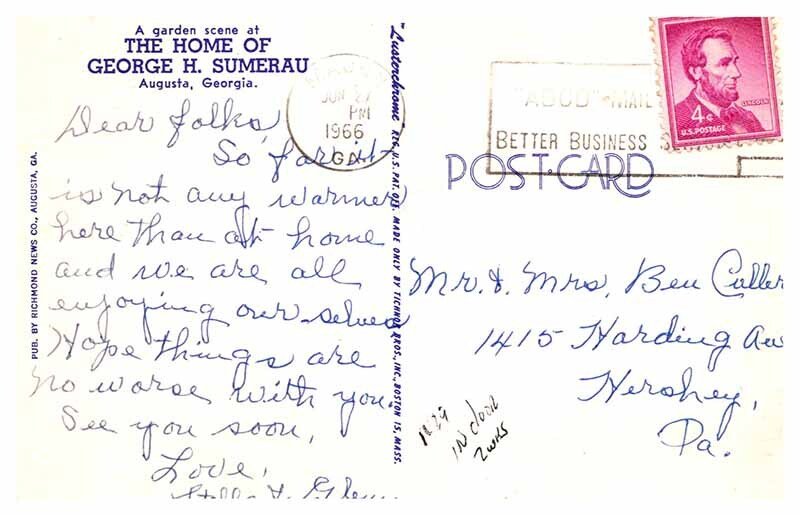 A garden scene at
THE HOME OF
GEORGE H. SUMERAU
Augusta, Georgia.
JUN 27
PM
1966
GA.
Dear folks,
So far it
is not any warmer
here than at home
and we are all
enjoying our selves
Hope things are
no worse with you.
See you soon,
Love,
PUB. BY RICHMOND NEWS CO., AUGUSTA, GA.
"Lusterchrome" REG. U.S. PAT. OFF. MADE ONLY BY TICHNOR BROS., INC., BOSTON 15, MASS.
"ABCD" MAIL
BETTER BUSINESS
4¢
LINCOLN
U.S. POSTAGE
POST CARD
Mr. & Mrs. Ben Culler
1415 Harding Av
Hershey,
Pa.
IN door
2 wks